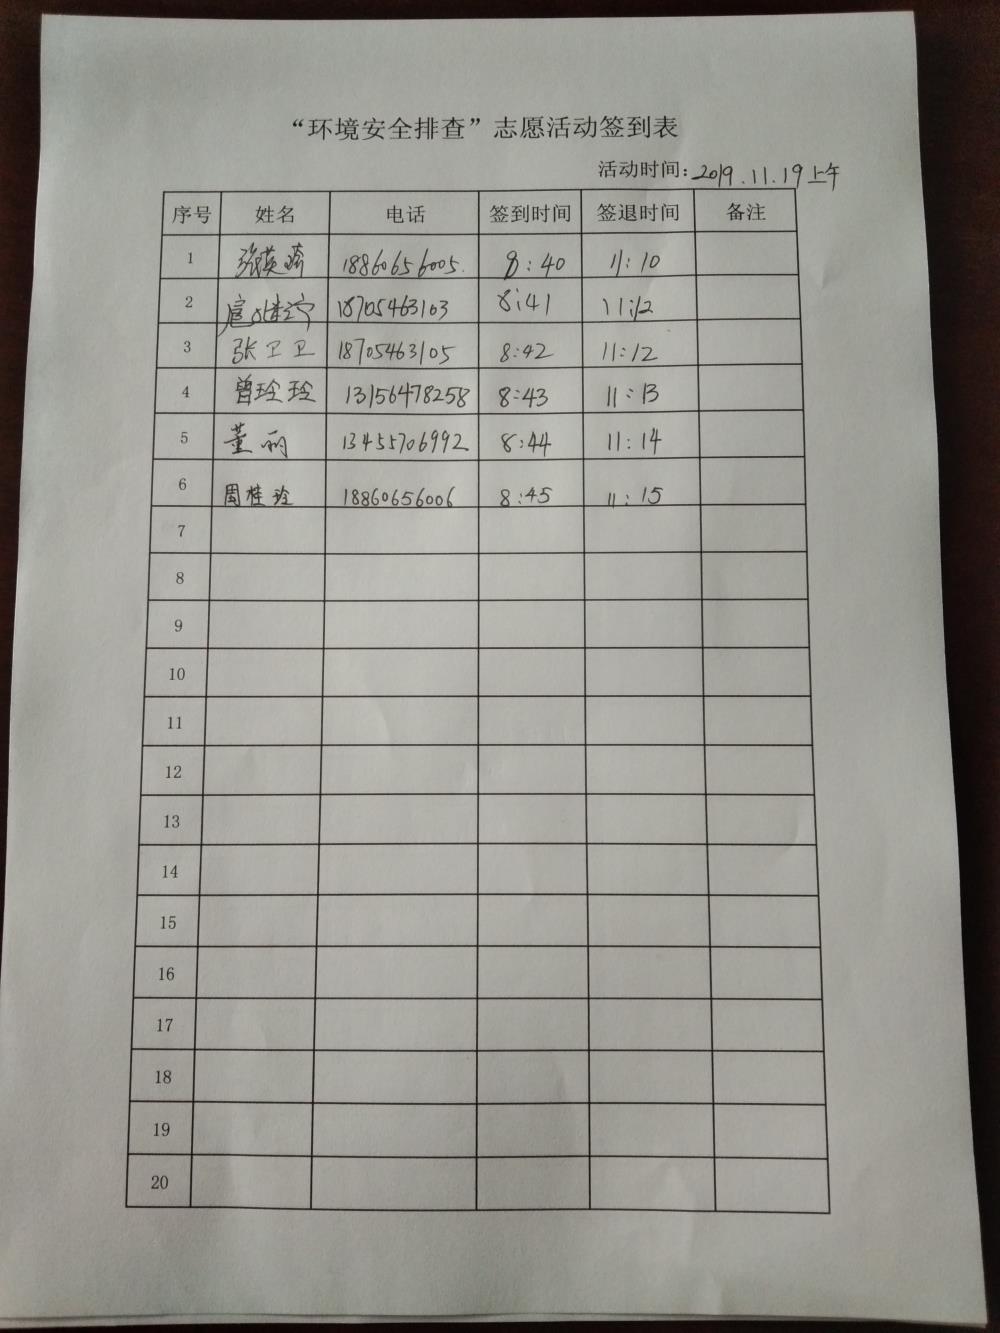 “环境安全排查”志愿活动签到表
活动时间:2019.11.19上午
序号 姓名 电话 签到时间 签退时间 备注
1 张英琦 18860656005. 8:40 11:10
2 18705463103 8:41 11:12
3 张卫卫 18705463105 8:42 11:12
4 曾玲玲 13156478258 8:43 11:13
5 董丽 13455706992 8:44 11:14
6 周桂玲 18860656006 8:45 11:15
7
8
9
10
11
12
13
14
15
16
17
18
19
20